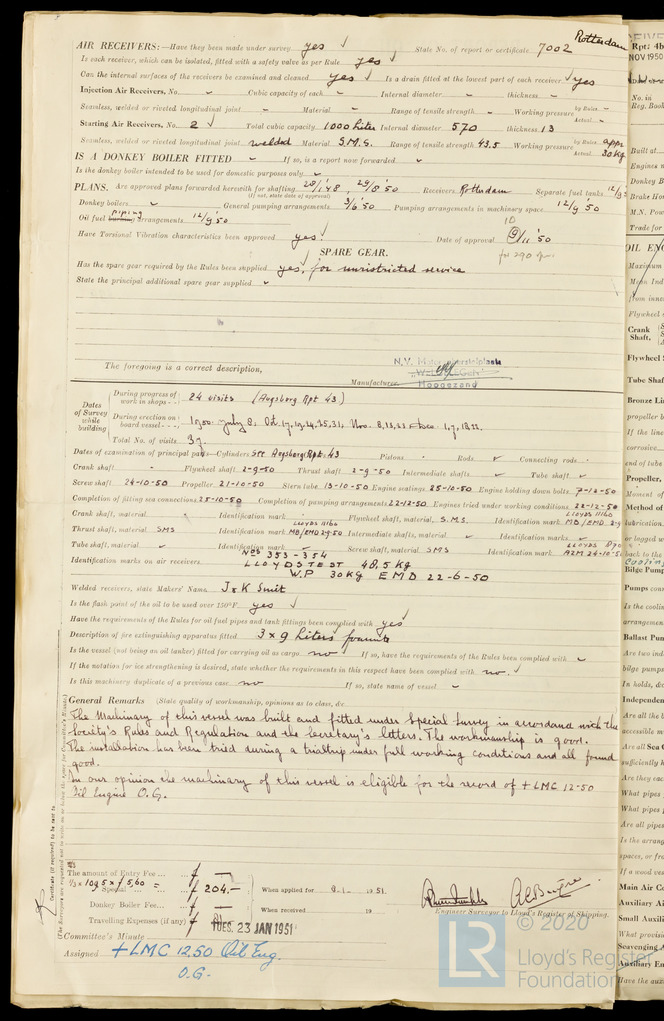 Rotterdam
AIR RECEIVERS:—Have they been made under survey yes State No. of report or certificate 7002
Is each receiver, which can be isolated, fitted with a safety valve as per Rule yes
Can the internal surfaces of the receivers be examined and cleaned yes Is a drain fitted at the lowest part of each receiver yes
Injection Air Receivers, No. Cubic capacity of each Internal diameter thickness
Seamless, welded or riveted longitudinal joint Material Range of tensile strength Working pressure by Rules Actual
Starting Air Receivers, No. 2 Total cubic capacity 1000 liter Internal diameter 570 thickness 13
Seamless, welded or riveted longitudinal joint welded Material S.M.S. Range of tensile strength 43.5 Working pressure by Rules appr Actual 30kg
IS A DONKEY BOILER FITTED If so, is a report now forwarded
Is the donkey boiler intended to be used for domestic purposes only
PLANS. Are approved plans forwarded herewith for shafting 28/1'48, 29/8'50 Receivers Rotterdam Separate fuel tanks 12/9
(If not, state date of approval)
Donkey boilers General pumping arrangements 3/6'50 Pumping arrangements in machinery space 12/9'50
Oil fuel piping arrangements 12/9'50
Have Torsional Vibration characteristics been approved yes. Date of approval 10/11'50
for 290
SPARE GEAR.
Has the spare gear required by the Rules been supplied yes, for unristricted service
State the principal additional spare gear supplied
N.V. Hoogezand
The foregoing is a correct description,
Manufacturer.
Dates of Survey while building
During progress of work in shops - - 24 visits (Augsberg Rpt 43)
During erection on board vessel - - - 1950 July 8, Oct. 17, 19, 24, 25, 31, Nov. 8, 13, 23 Dec. 1, 7, 18, 22.
Total No. of visits 37.
Dates of examination of principal parts—Cylinders See Augsberg Rpt: 43 Pistons Rods Connecting rods
Crank shaft Flywheel shaft 2-9-50 Thrust shaft 2-9-50 Intermediate shafts Tube shaft
Screw shaft 24-10-50 Propeller 21-10-50 Stern tube 13-10-50 Engine seatings 25-10-50 Engine holding down bolts 7-12-50
Completion of fitting sea connections 25-10-50 Completion of pumping arrangements 22-12-50 Engines tried under working conditions 22-12-50
Crank shaft, material Identification mark Flywheel shaft, material S.M.S. Identification mark LLOYDS 11160 MB/EMD 2-9
Thrust shaft, material SMS Identification mark LLOYDS 11160 MB/EMD 2-9-50 Intermediate shafts, material Identification marks
Tube shaft, material Identification mark Screw shaft, material SMS Identification mark LLOYDS AZM 24-10-50
Identification marks on air receivers Nos 353 - 354
LLOYDS TEST 48,5 Kg
W.P 30Kg EMD 22-6-50
Welded receivers, state Makers' Name J & K Smit
Is the flash point of the oil to be used over 150°F. yes
Have the requirements of the Rules for oil fuel pipes and tank fittings been complied with yes
Description of fire extinguishing apparatus fitted 3 x 9 liters foamite
Is the vessel (not being an oil tanker) fitted for carrying oil as cargo no If so, have the requirements of the Rules been complied with
If the notation for ice strengthening is desired, state whether the requirements in this respect have been complied with no
Is this machinery duplicate of a previous case no If so, state name of vessel
General Remarks (State quality of workmanship, opinions as to class, &c.
The Machinery of this vessel was built and fitted under Special Survey in accordance with the
Society's Rules and Regulation and the Secretary's letters. The workmanship is good.
The installation has been tried during a trialtrip under full working conditions and all found
good.
In our opinion the machinery of this vessel is eligible for the record of +LMC 12-50
Oil Engine O.G.
The amount of Entry Fee ...
Special ƒ 204.— When applied for 19 51.
Donkey Boiler Fee ... When received 19
Travelling Expenses (if any)
TUES. 23 JAN 1951
Engineer Surveyor to Lloyd's Register of Shipping.
Committee's Minute
Assigned +LMC 12.50 Oil Eng.
O.G.
© 2020
LR Lloyd's Register
Foundation
Certificate (if required) to be sent to
Rpt: 4b
NOV 1950
No. in
Reg. Book
Built at
Engines
Donkey B
Brake Ho
M.N. Pow
Trade for
OIL ENG
Maximum
Mean Ind
from inne
Flywheel
Crank Shaft,
Flywheel S
Tube Shaf
Bronze Lin
propeller b
If the line
corrosive
end of tube
Propeller,
Moment of
Method of
lubrication
or lagged w
back to the
Cooling
Bilge Pump
Pumps con
Is the coolin
arrangemen
Ballast Pum
Are two ind
bilge pumps
In holds, &c
Independen
Are all the b
accessible m
Are all Sea C
sufficiently h
Are they eac
What pipes
What pipes p
Are all pipes
Is the arrang
spaces, or fr
If a wood ves
Main Air Co
Auxiliary Ai
Small Auxili
What provisi
Scavenging A
Auxiliary En
Have the aux